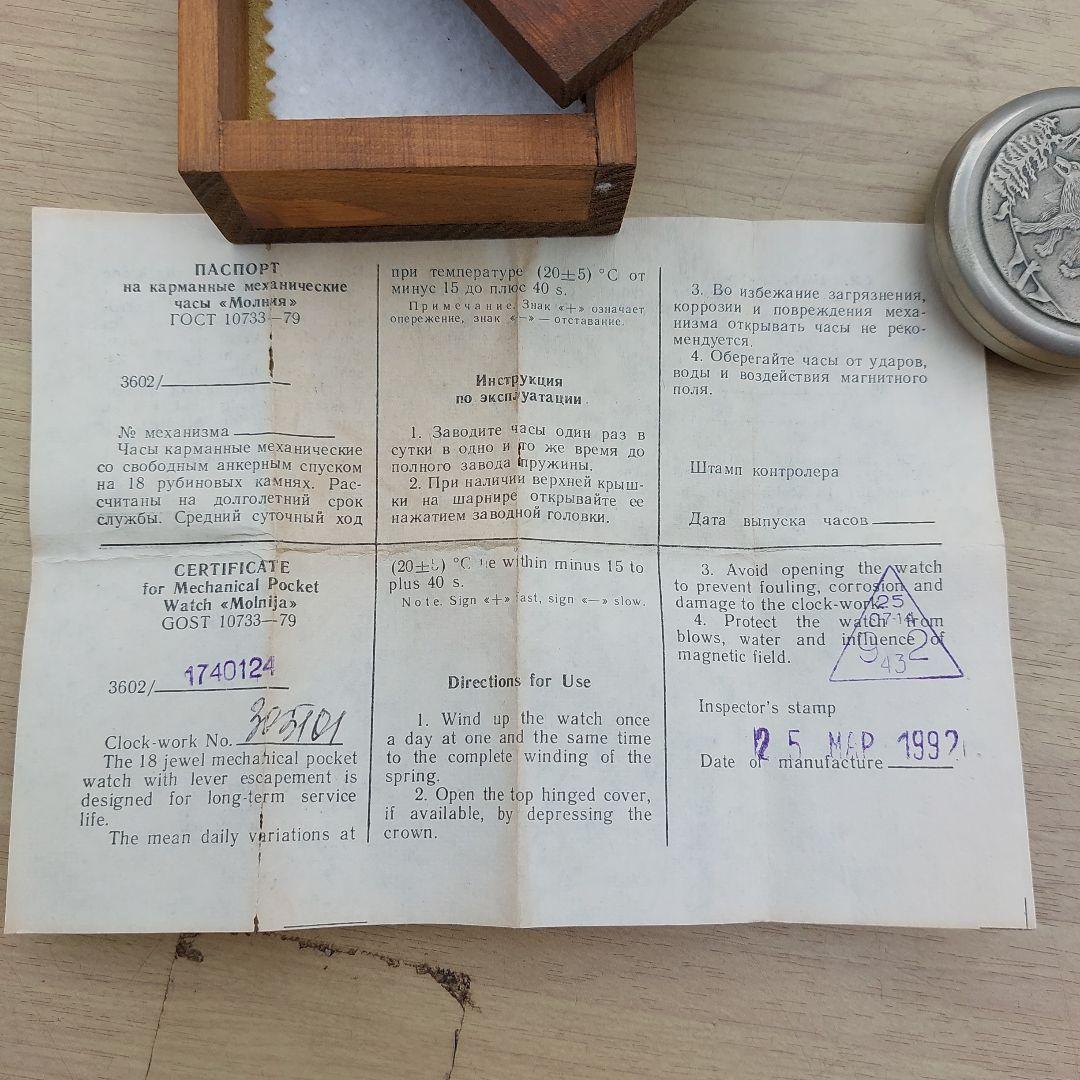 ПАСПОРТ
на карманные механические
часы «Молния»
ГОСТ 10733—79
3602/
№ механизма
Часы карманные механические
со свободным анкерным спуском
на 18 рубиновых камнях. Рас-
считаны на долголетний срок
службы. Средний суточный ход
при температуре (20±5) °C от
минус 15 до плюс 40 s.
Примечание. Знак «+» означает
опережение, знак «—» — отставание.
Инструкция
по эксплуатации
1. Заводите часы один раз в
сутки в одно и то же время до
полного завода пружины.
2. При наличии верхней крыш-
ки на шарнире открывайте ее
нажатием заводной головки.
3. Во избежание загрязнения,
коррозии и повреждения меха-
низма открывать часы не реко-
мендуется.
4. Оберегайте часы от ударов,
воды и воздействия магнитного
поля.
Штамп контролера
Дата выпуска часов
CERTIFICATE
for Mechanical Pocket
Watch «Molnija»
GOST 10733—79
3602/ 1740124
Clock-work No. 305101
The 18 jewel mechanical pocket
watch with lever escapement is
designed for long-term service
life.
The mean daily variations at
(20±5) °C lie within minus 15 to
plus 40 s.
Note. Sign «+» fast, sign «—» slow.
Directions for Use
1. Wind up the watch once
a day at one and the same time
to the complete winding of the
spring.
2. Open the top hinged cover,
if available, by depressing the
crown.
3. Avoid opening the watch
to prevent fouling, corrosion and
damage to the clock-work.
4. Protect the watch from
blows, water and influence of
magnetic field.
25
07-14
9 2
43
Inspector's stamp
Date of manufacture 25 МАР 1992